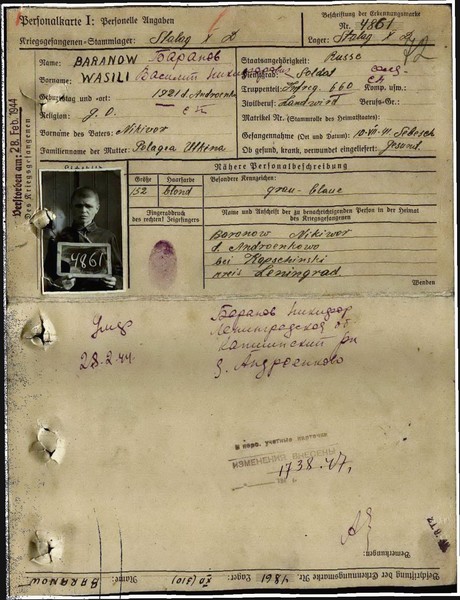 Personalkarte I: Personelle Angaben
Kriegsgefangenen-Stammlager: Stalag X D
Beschriftung der Erkennungsmarke
Nr. 4861
Lager: Stalag X D
Name: BARANOW Баранов
Vorname: WASILI Василий Никифорович
Geburtstag und -ort: 1921 d. Androenko
Religion: g. O.
Vorname des Vaters: Nikiwor
Familienname der Mutter: Pelagia Ulkina
Staatsangehörigkeit: Russe
Dienstgrad: Soldat
Truppenteil: Infreg. 660 Komp. usw.:
Zivilberuf: Landwirt Berufs-Gr.:
Matrikel Nr. (Stammrolle des Heimatstaates):
Gefangennahme (Ort und Datum): 10.VII.41.
Ob gesund, krank, verwundet eingeliefert: Gesund
Verstorben am: 28. Feb. 1944
Des Kriegsgefangenen
4861
Nähere Personalbeschreibung
Größe Haarfarbe Besondere Kennzeichen:
152 blond grau-blaue
Fingerabdruck
des rechten! Zeigefingers
Name und Anschrift der zu benachrichtigenden Person in der Heimat
des Kriegsgefangenen
Baranow Nikiwor
d. Androenkowo
bei Kapschinski
kreis Leningrad
Wenden
Умер
28.2.44.
Баранов Никифор
Ленинградская об
Капшинский рн
д. Андроенково
ИЗМЕНЕНИЯ ВНЕСЕНЫ
1738.47,
Bemerkungen:
Beschriftung der Erkennungsmarke Nr. 4861 Lager: XD (310) Name: BARANOW